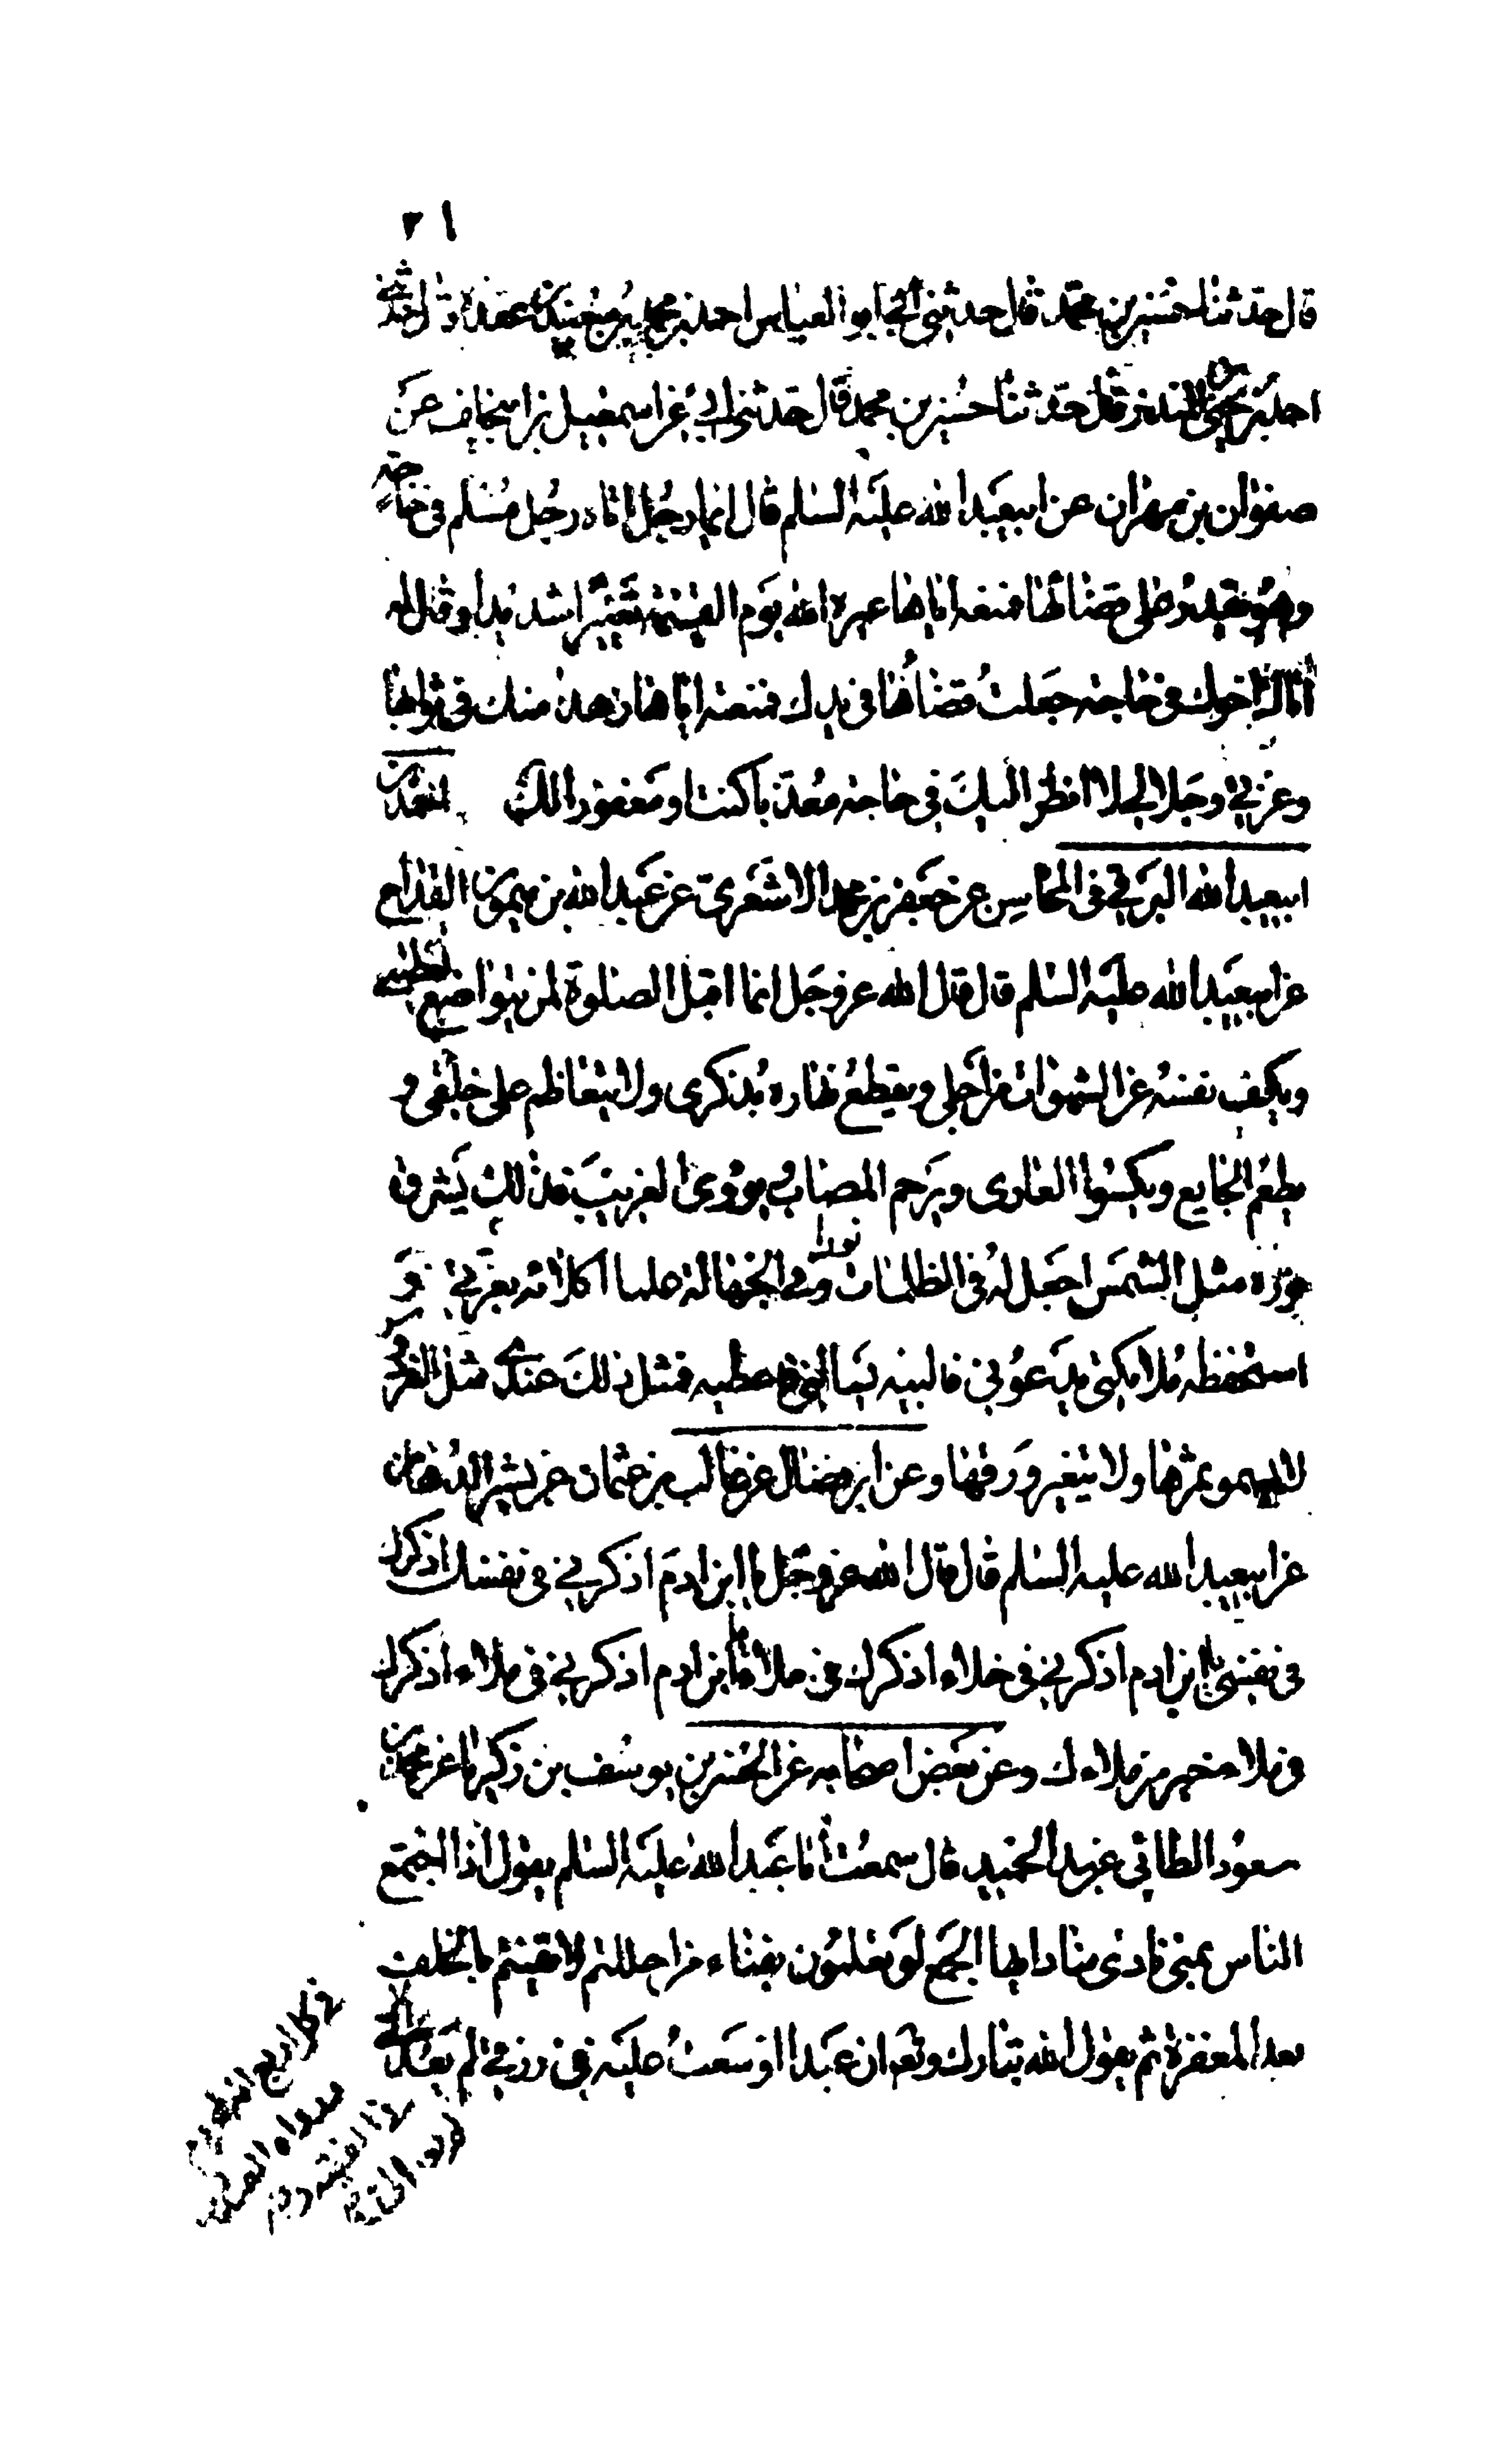 قال حدثنا حسين بن محمد قال حدثني الحجا ابو العباس احمد بن محمد بن سعيد بن عقدة قال حدثني
احمد بن يحيى المنذر قال حدثنا حسين بن محمد قال حدثني ابي عن اسمعيل بن ابي خالد عن
صفوان بن مهران عن ابيعبد الله عليه السلم قال ايما رجل اتاه رجل مسلم في حاجة
وهو يقدر على قضائها فمنعه اياها عيره الله يوم القيمة تعييرا شديدا وقال له
اتاك اخوك في حاجة جعلت قضائها في يدك فمنعته اياها زهدا منك في ثوابها
وعزتي وجلالي لا انظر اليك في حاجة معذبا كنت او مغفورا لك احمد بن
ابيعبد الله البرقي في المحاسن عن جعفر بن محمد الاشعري عن عبد الله بن ميمون القداح
عن ابيعبد الله عليه السلم قال قال الله عز وجل انما اقبل الصلوة لمن تواضع لعظمتي
ويكف نفسه عن الشهوات من اجلي ويقطع نهاره بذكري ولا يتعاظم على خلقي و
يطعم الجايع ويكسوا العاري ويرحم المصاب ويؤوى الغريب فذلك يشرق
نوره مثل الشمس اجعل له في الظلمات نورا وفي الجهالة علما اكلاءه بعزتي و
استحفظه ملائكتي يدعوني فالبيه يسالني فاعطيه فمثل ذلك عندي كمثل الفردوس
لا يسمو ثمرها ولا يتغير ورقها وعن ابن فضال عن غالب بن عثمان عن بشير الدهان
عن ابيعبد الله عليه السلم قال قال الله عز وجل يا ابن ادم اذكرني في نفسك اذكرك
في نفسي يا ابن ادم اذكرني في خلاء اذكرك في خلاء يا ابن ادم اذكرني في ملاء اذكرك
في ملاء خير من ملاءك وعن بعض اصحابه عن الحسن بن يوسف بن زكريا عن محمد بن
مسعود الطائي عن عبد الحميد قال سمعت ابا عبد الله عليه السلم يقول اذا اجتمع
الناس بمنى نادى مناد ايها الجمع لو تعلمون بفناء من احللتم لايقنتم بالخلف
بعد المغفرة ثم يقول الله تبارك وتعه ان عبدا اوسعت عليه في رزقي لم يفد الي